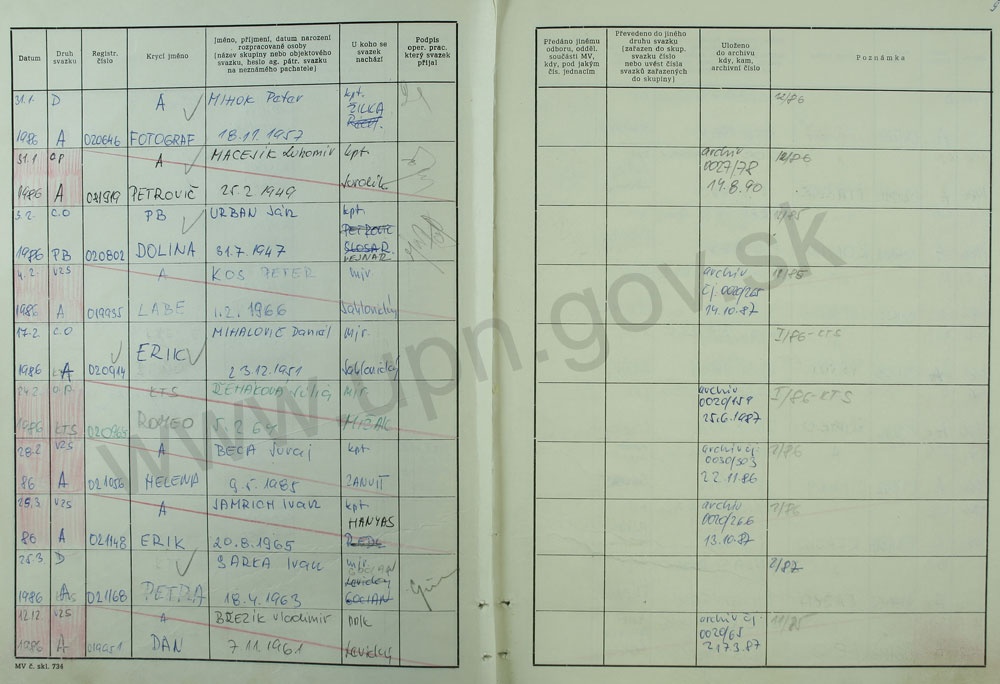 Datum
Druh svazku
Registr. číslo
Krycí jméno
Jméno, příjmení, datum narození rozpracované osoby (název skupiny nebo objektového svazku, heslo ag. pátr. svazku na neznámého pachatele)
U koho se svazek nachází
Podpis oper. prac. který svazek přijal
Předáno jinému odboru, odděl. součásti MV, kdy, pod jakým čís. jednacím
Převedeno do jiného druhu svazku (zařazen do skup. svazku číslo nebo uvést čísla svazků zařazených do skupiny)
Uloženo do archivu kdy, kam, archivní číslo
Poznámka
31.1. D A MIHOK Peter kpt. 12/86
ŽILKA
1986 A 020646 FOTOGRAF 18.11.1957
31.1 OP A MACEJIK Ľubomír kpt archiv 12/86
0027/78
1986 A PETROVIČ 25.2 1949 14.8.90
3.2. CO PB URBAN Ján kpt.
PETROVIC
SLOSAR
1986 PB 020802 DOLINA 31.7.1947 VEJNAR
4.2. VZS A KOS PETER mjr. archiv 11/85
1986 A 019935 LABE 1.2.1966 Jablonický 14.10.87
17.2. CO MIHALOVIČ Daniel mjr. I/86-KTS
ERIK
1986 A 020914 23.12.1951 Jablonický
24.2. OP KTS REHAKOVÁ Júlia mjr. archiv I/86-KTS
0020/159
1986 KTS ROMEO 5.2 64 25.6.1987
28.2 VZS A BECA Juraj kpt archiv čj. 2/86
0030/303
86 A 021056 HELENA 9.5.1985 JANVIT 22.11.86
25.3. VZS A JAMRICH Ivan kpt archiv 2/86
HANYAS 0020/266
86 A 021148 ERIK 20.8.1965 13.10.87
25.3 D SARKA Ivan mjr 2/87
Levický
1986 021168 PETRA 18.4.1963 GOCIAN
12.12. VZS A BŘEZIK Vladimír pplk archiv čj. 11/85
0020/65
1986 A 019951 DAN 7.11.1961 Levický 21.7.87
MV č. skl. 734
www.upn.gov.sk